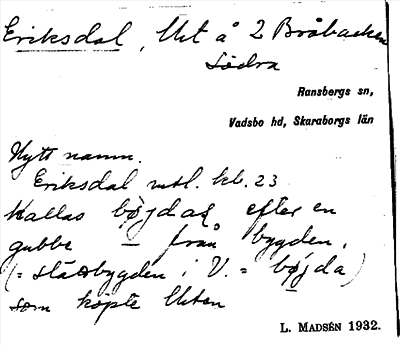 Eriksdal, Uxt å 2 Bråbacken
Södra
Ransbergs sn,
Vadsbo hd, Skaraborgs län
Nytt namn.
Eriksdal mtl. kb. 23
kallas bøjdas efter en
gubbe — från bygden,
(= slätbygden i V. = bøjda)
som köpte
L. MADSÉN 1932.